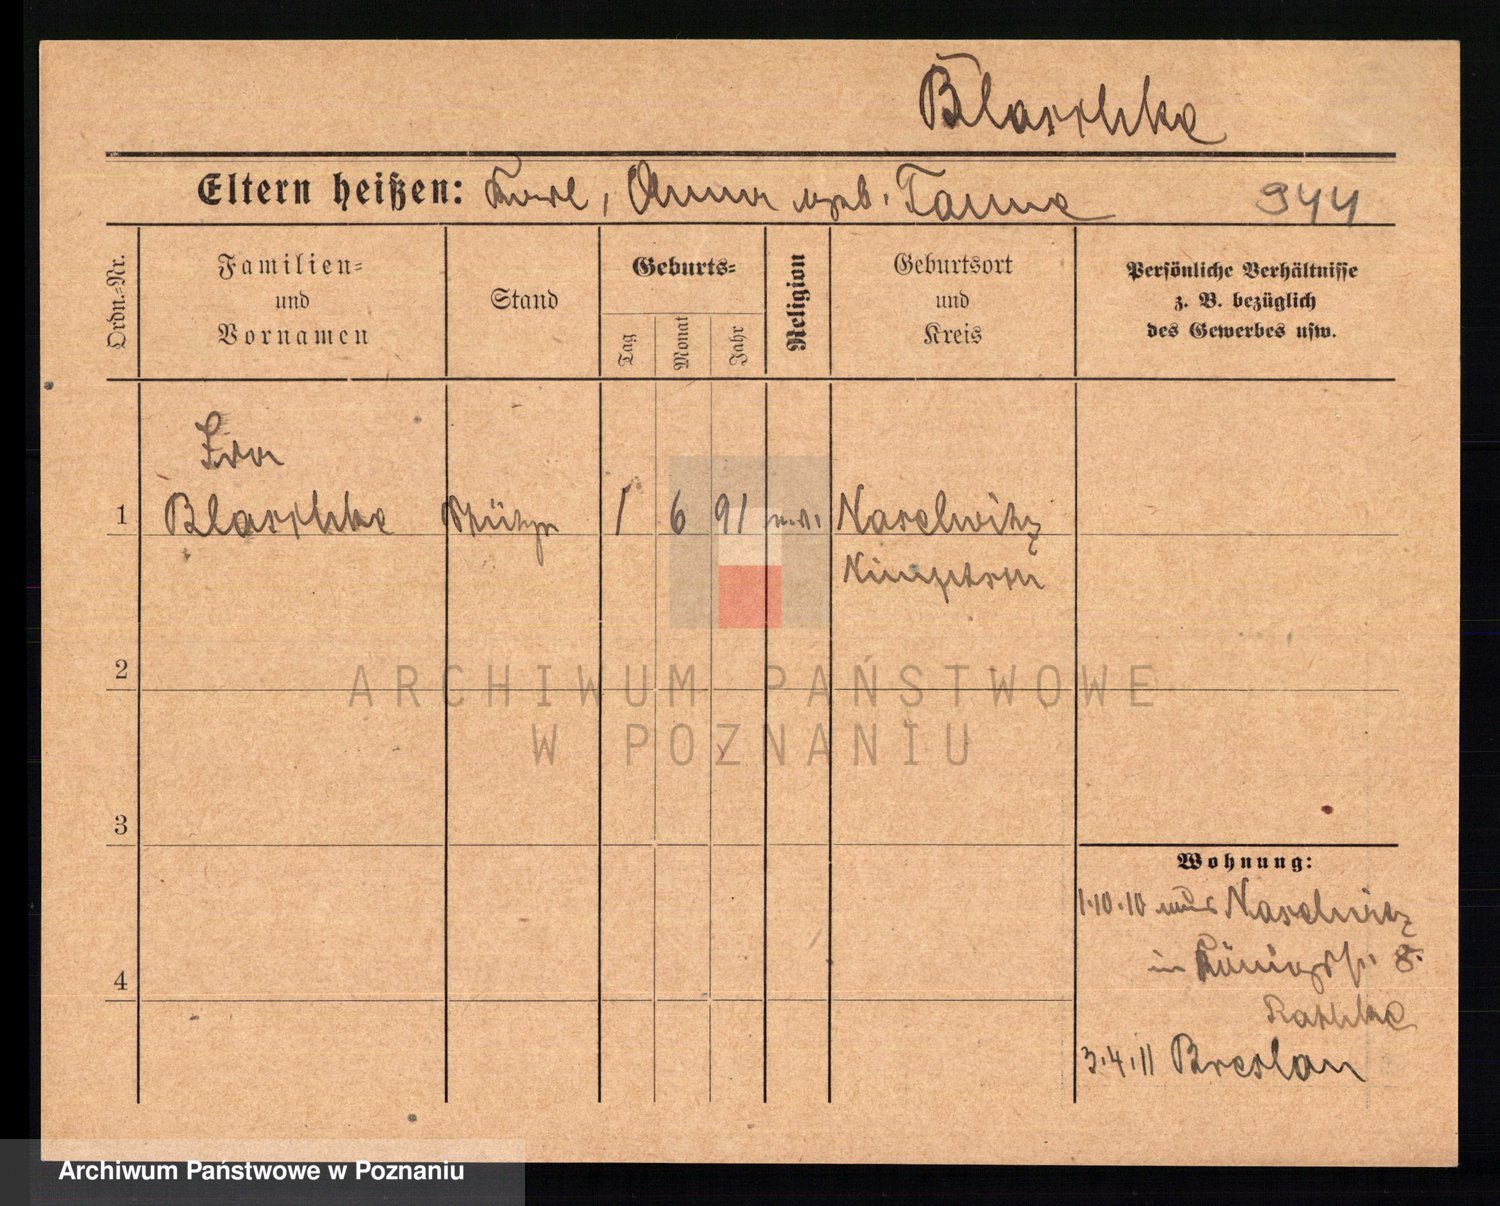 Blaschke
Eltern heißen: Karl, Anna geb. Tanne 944
Ordn.-Nr.
Familien=
und
Vornamen
Stand
Geburts=
Tag
Monat
Jahr
Religion
Geburtsort
und
Kreis
Persönliche Verhältnisse
z. B. bezüglich
des Gewerbes usw.
Iva
1 Blaschke Stütze 1 6 91 Naselwitz
Nimptsch
2
ARCHIWUM PAŃSTWOWE
W POZNANIU
3
Wohnung:
1.10.10 aus Naselwitz
in Königspl. 8.
Raschke
4
3.4.11 Breslau
Archiwum Państwowe w Poznaniu